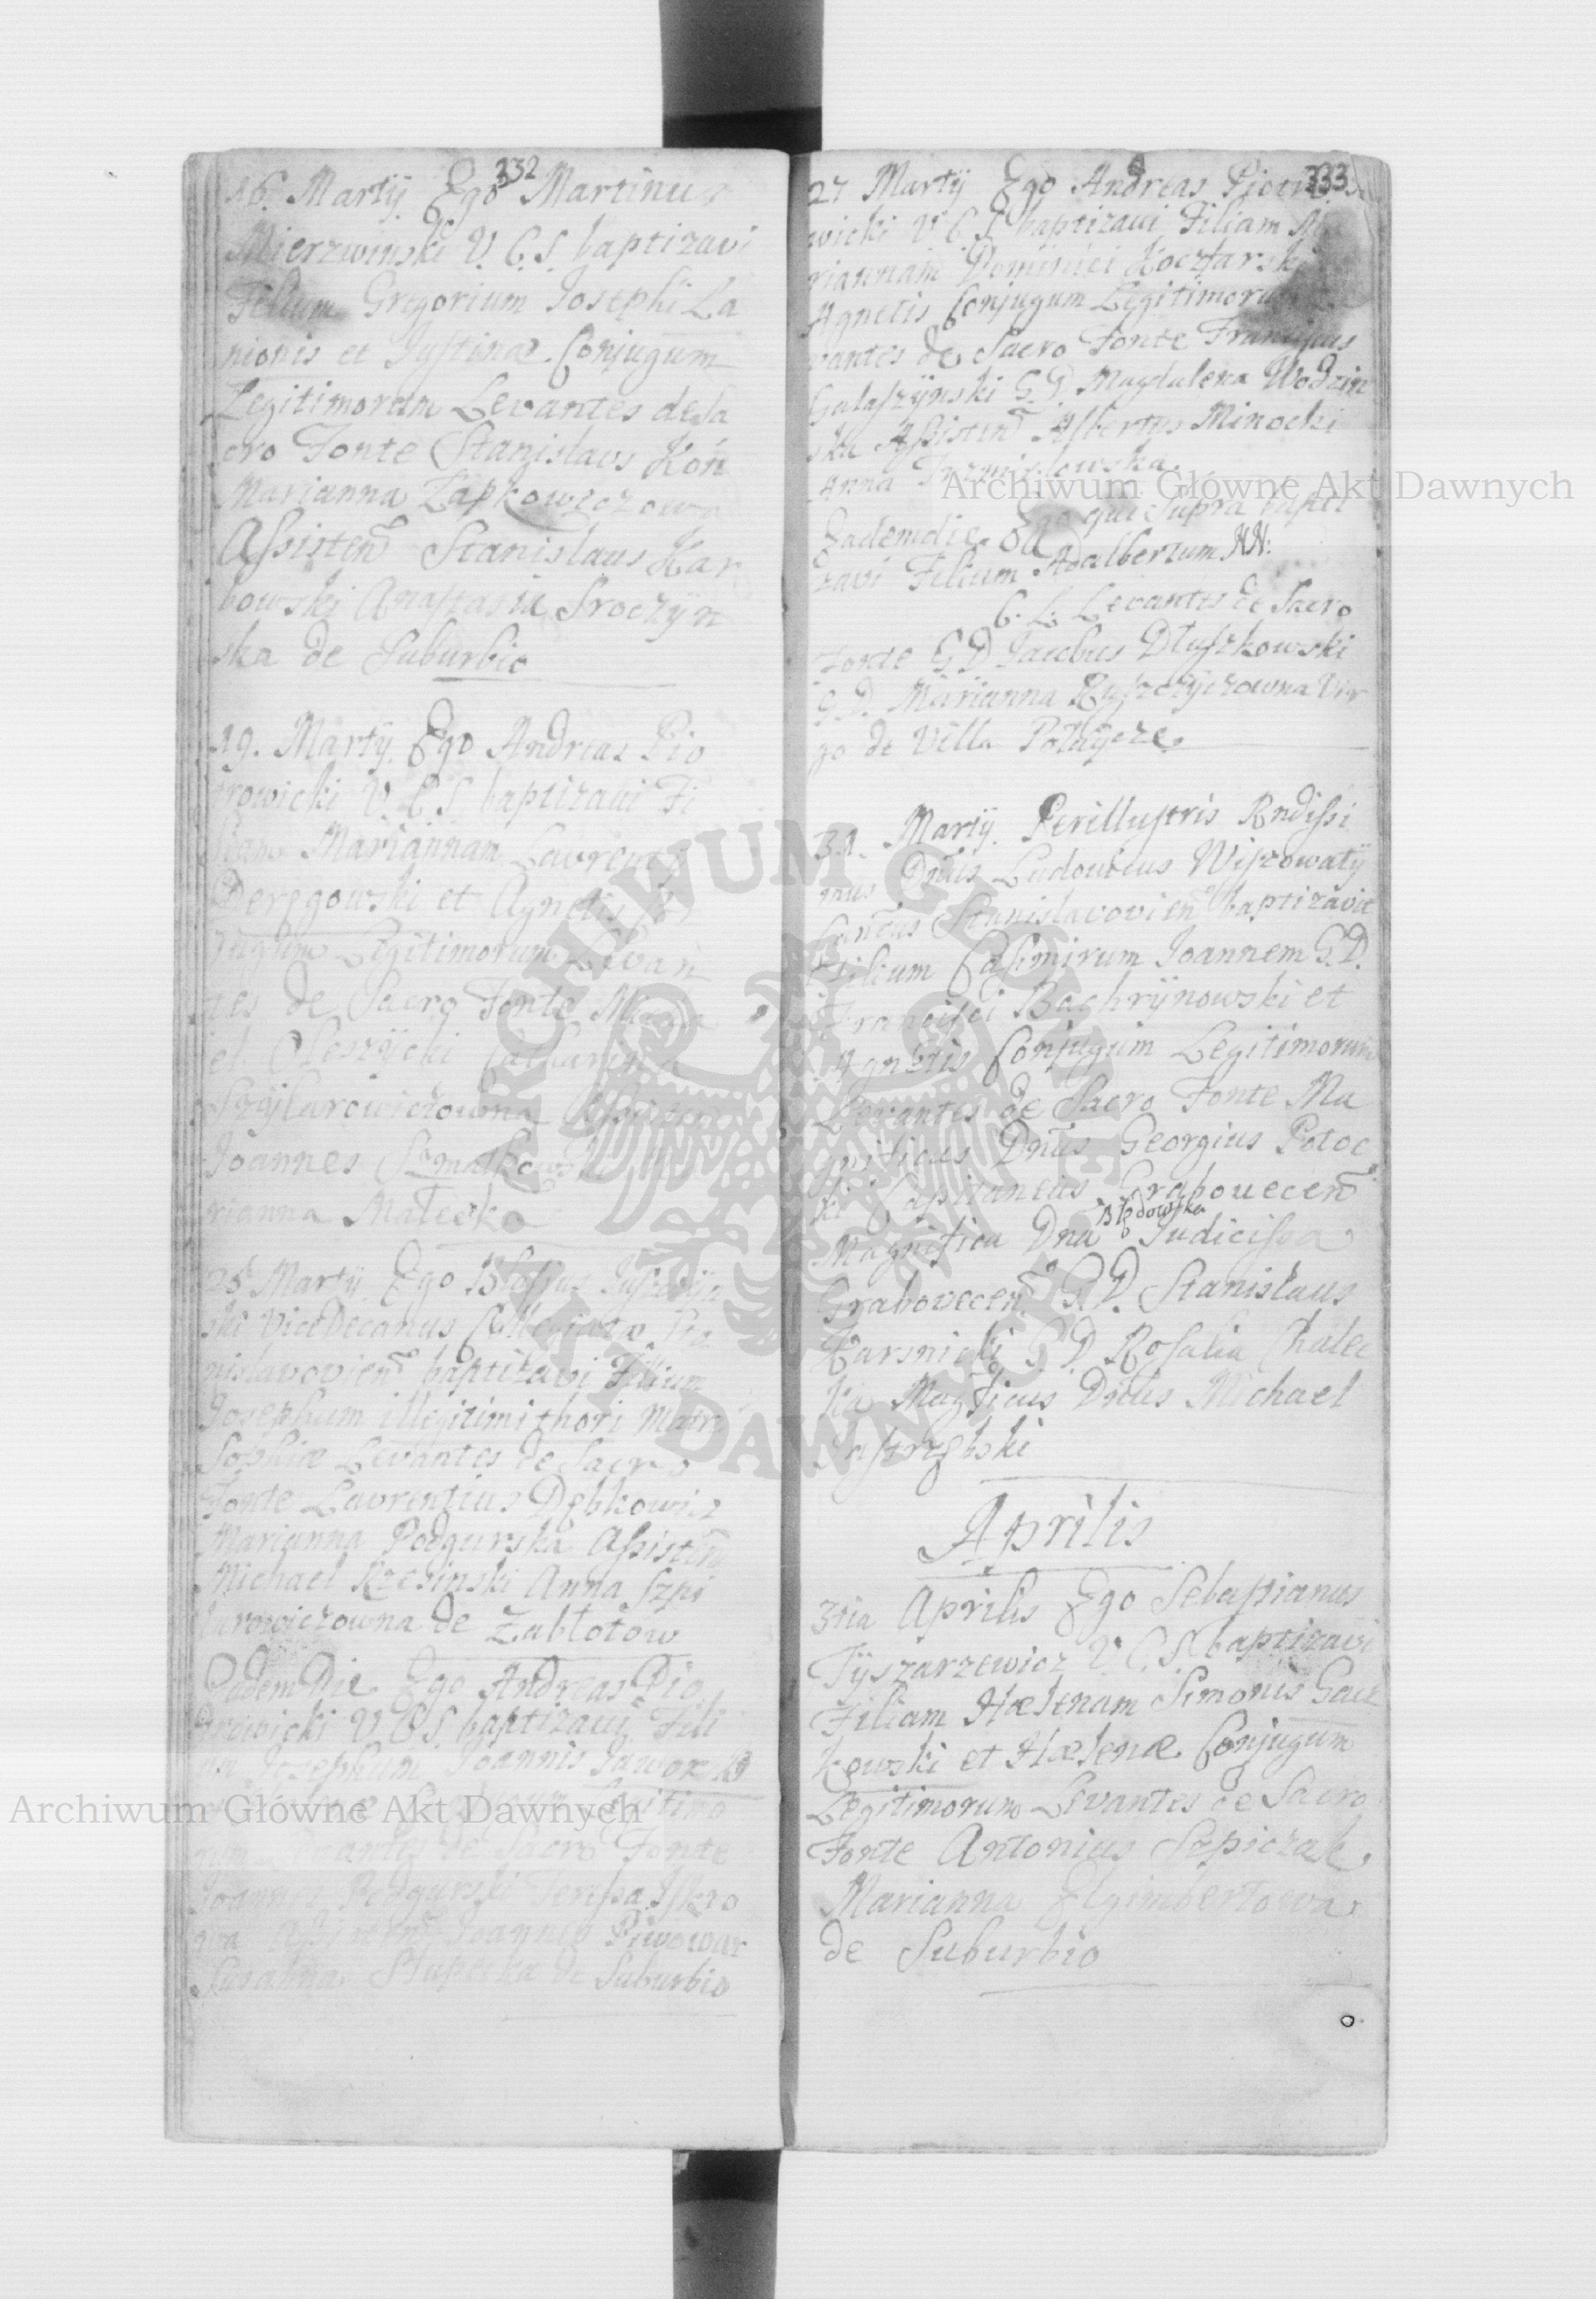 332
16. Martij Ego Martinus
Mierzwinski V. C. S. baptizavi
Filium Gregorium Josephi La
nionis et Justinæ Conjugum
Legitimorum Levantes de Sa
cro Fonte Stanislaus Koń
Marianna Łapkowiczowa
Assisten Stanislaus Kar
bowski Anastasia Sroczÿn
ska de Suburbio
19. Martij Ego Andreas Pio
trowicki V. C. S. baptizavi Fi
liam Mariannam Laurentij
Deręgowski et Agnetis Con
jugum Legitimorum Levan
tes de Sacro Fonte
Oleszÿcki Catharina
Joannes
rianna Małecka
25 Martij Ego Blasius
ski ViceDecanus Collegiatæ Sta
nislavovien baptizavi Filium
Josephum illegitimi thori Matr
Sophiæ Levantes de Sacro
Fonte Laurentius Dębkowicz
Marianna Podgurska Assisten
Michael Rzesinski Anna Szpi
larowiczowna de Zabłotow
Eadem Die Ego Andreas Pio
trowicki V. C. S. baptizavi Fili
um Josephum Joannis Jaworski
Conjugum Legitimo
rum Levantes de Sacro Fonte
Joannes Podgurski Teressa
Joannes Piwowar
Słupecka de Suburbio
333
27 Martij Ego Andreas Piotro
wicki V. C. S. baptizavi Filiam Ma
riannam Dominici Kocztarski
Agnetis Conjugum Legitimorum
vantes de Sacro Fonte Franciscus
Galaszÿnski G. D. Magdalena Wodzin
ska Assisten Albertus Minocki
Anna
Eadem die Ego qui Supra bapti
zavi Filium Adalbertum NN:
C. L. Levantes de Sacro
Fonte G. D. Jacobus Dłuszkowski
G. D. Marianna Ryszczÿczowna Vir
go de Villa
31. Martij Perillustris Rndissi
mus Dnus Ludovicus Wiszowatÿ
Stanislavovien baptizavit
Filium Casimirum Joannem G. D.
Francisci Bachrÿnowski et
Agnetis Conjugum Legitimorum
Levantes de Sacro Fonte Ma
gnificus Dnus Georgius Potoc
ki Capitaneus Grabovecen
Błędowska
Magnifica Dna Judicissa
Grabovecen G. D. Stanislaus
Karsnicki G. D. Rosalia Chalec
ka Magficus Dnus Michael
Jastrzębski
Aprilis
3tia Aprilis Ego Sebastianus
Tÿszarzewicz V. C. S. baptizavi
Filiam Hælenam Simonis Gacz
kowski et Hælenæ Conjugum
Legitimorum Levantes de Sacro
Fonte Antonius Szpiczak
Marianna Elgimbertowa
de Suburbio
Archiwum Główne Akt Dawnych
Archiwum Główne Akt Dawnych
ARCHIWUM GŁÓWNE AKT DAWNYCH